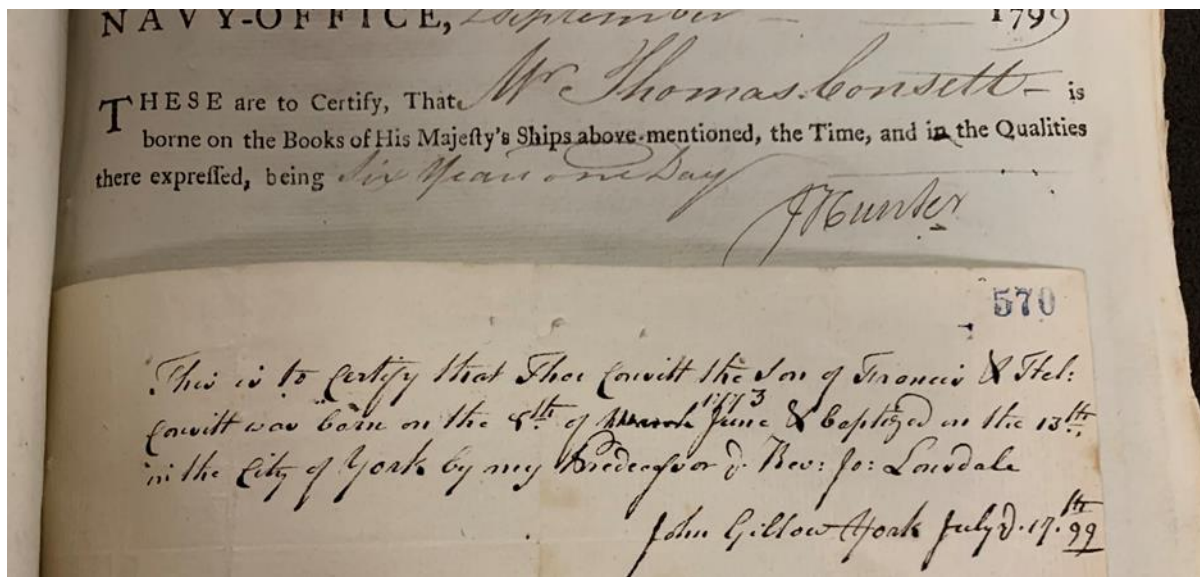 NAVY-OFFICE, 2 September 1799
THESE are to Certify, That Mr Thomas Consett is
borne on the Books of His Majeſty's Ships above-mentioned, the Time, and in the Qualities
there expreſſed, being Six Years one Day
J Hunter
570
This is to Certify that Thos Consitt the Son of Francis & Hel:
Consitt was born on the 8th of March June 1773 & baptized on the 13th
in the City of York by my Predecessor ye Rev: Jo: Lonsdale
John Gillow York July ye 17th 99